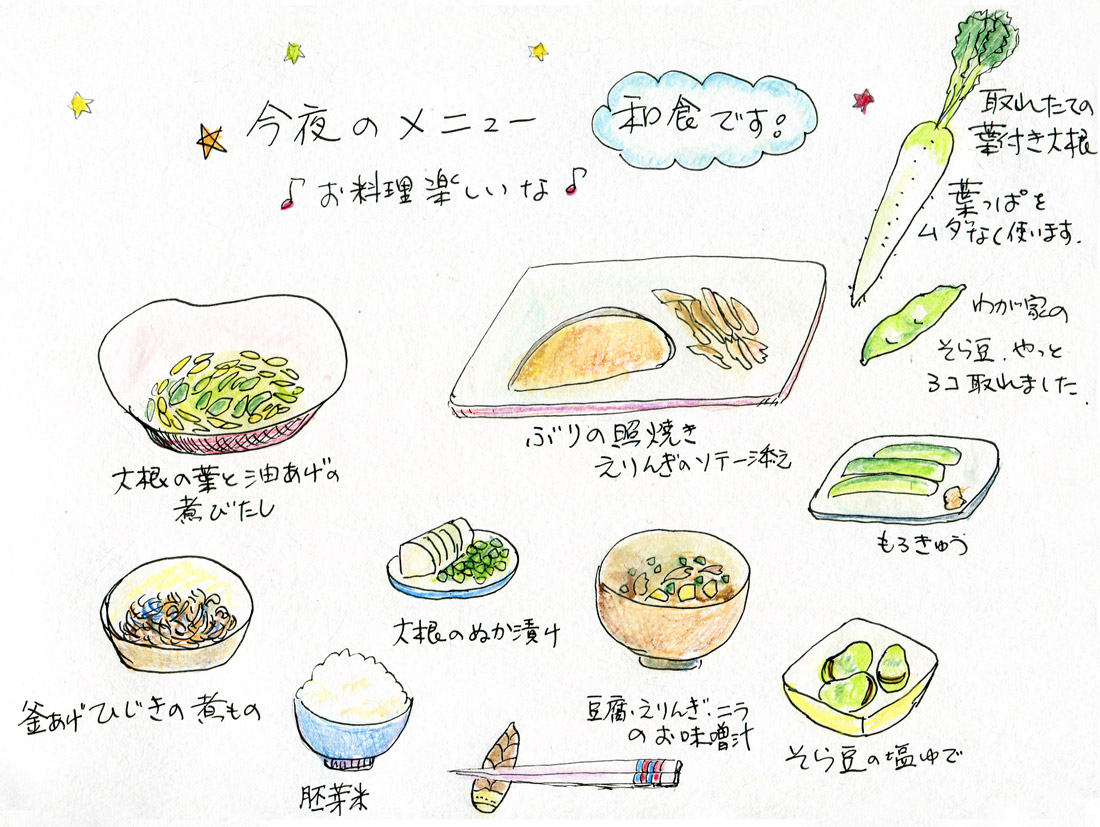 今夜のメニュー
和食です。
♪お料理楽しいな♪
取れたての
葉付き大根
葉っぱを
ムダなく使います.
わが家の
そら豆.やっと
3コ取れました.
ぶりの照焼き
えりんぎのソテー添え
大根の葉と油あげの
煮びたし
もろきゅう
大根のぬか漬け
釜あげひじきの煮もの
豆腐・えりんぎ・ニラ
のお味噌汁
そら豆の塩ゆで
胚芽米